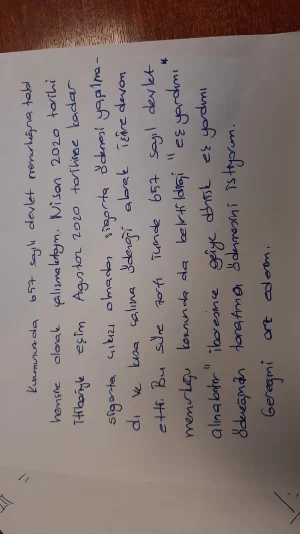 Kurumunuzda 657 sayılı devlet memurluğuna tabi
hemşire olarak çalışmaktayım. Nisan 2020 tarihi
itibariyle eşim Ağustos 2020 tarihine kadar
sigorta çıkışı olmadan, sigorta ödemesi yapılma-
dı ve kısa çalışma ödeneği alarak işine devam
etti. Bu süre zarfı içinde 657 sayılı devlet
memurluğu kanununda da belirtildiği "eş yardımı
alınabilir" ibaresince geriye dönük eş yardımı
ödeneğinin tarafıma ödenmesini istiyorum.
Gereğini arz ederim.